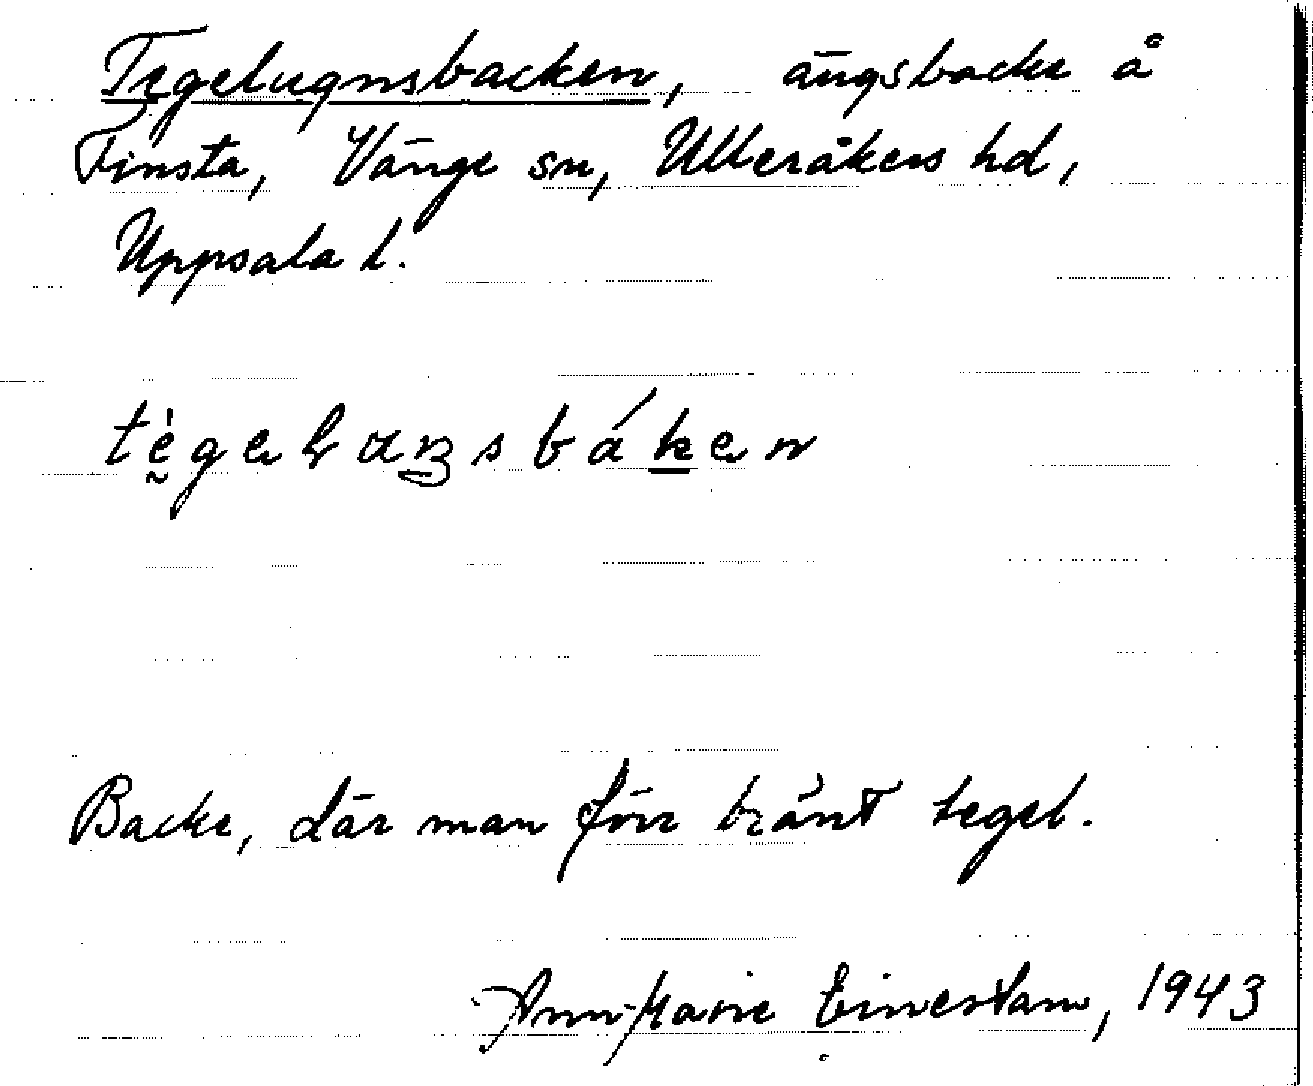 Tegelugnsbacken, ängsbacke å
Finsta, Vänge sn, Ulleråkers hd,
Uppsala l.
Backe, där man förr bränt tegel.
Ann-Marie Einerstam, 1943